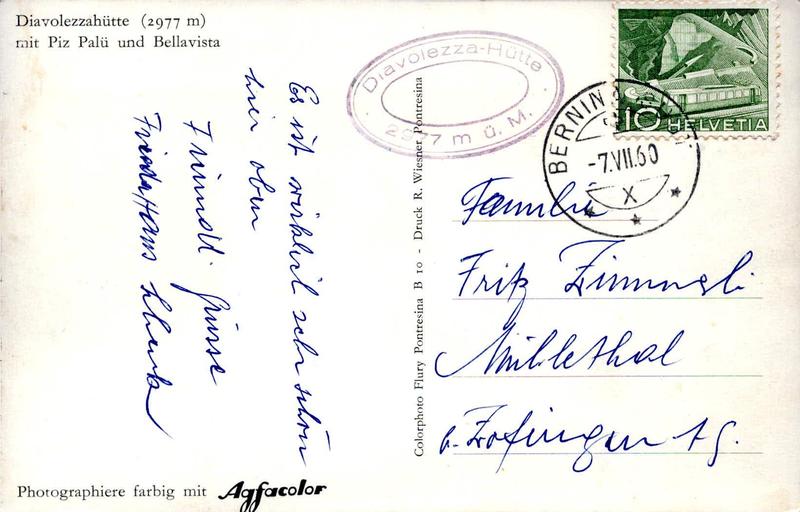 Diavolezzahütte (2977 m)
mit Piz Palü und Bellavista
Es ist wirklich sehr schön
hier oben
Freundl. Grüsse
Hans
Diavolezza-Hütte
2977 m ü. M.
HELVETIA
10
BERNIN
-7.VII.60
X
Familie
Fritz Zimmerli
Mühlethal
b. Zofingen Ag.
Colorphoto Flury Pontresina B 10 - Druck R. Wiesner, Pontresina
Photographiere farbig mit Agfacolor